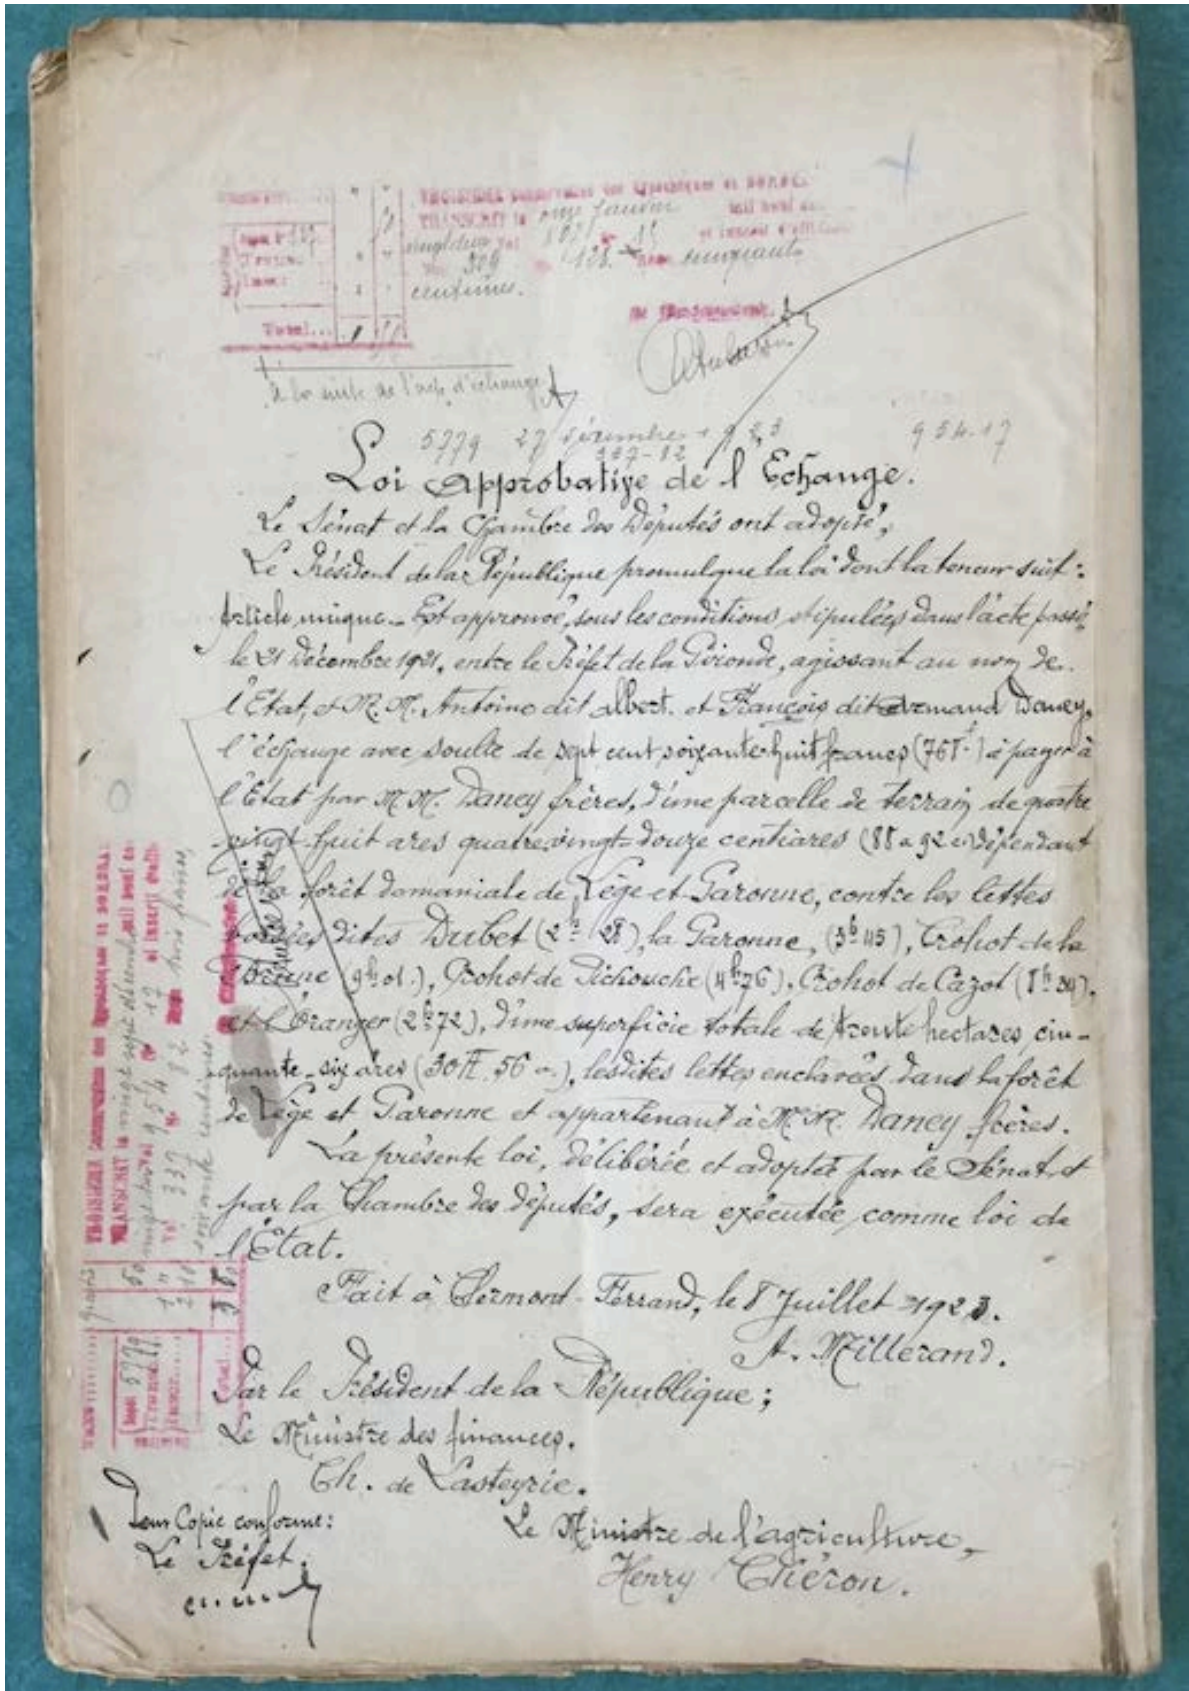 TRANSCRIT le onze Janvier mil neuf cent
vingt deux Vol 187 N° 15 et inscrit d'office
Vol 309 N° 128. Reçu cinquante
centimes.
Total...
à la suite de l'acte d'échange
5779 27 décembre 1923 954.17
337-82
Loi approbative de l'Echange.
Le Sénat et la Chambre des Députés ont adopté,
Le Président de la République promulgue la loi dont la teneur suit :
Article unique. - Est approuvé, sous les conditions stipulées dans l'acte passé
le 21 Décembre 1921, entre le Préfet de la Gironde, agissant au nom de
l'Etat, et M. M. Antoine dit Albert. et François dit Armand Daney,
l'échange avec soulte de sept cent soixante-huit francs (768 f) à payer à
l'Etat par M. M. Daney frères, d'une parcelle de terrain de quatre
vingt huit ares quatre vingt-douze centiares (88 a 92 c) dépendant
de la forêt domaniale de Lège et Garonne, contre les lettes
boisées dites Dubet (2 h 28), la Garonne, (3 h 45), Crohot de la
(9 h 01.), Crohot de Pichouche (4 h 76), Crohot de Cazot (8 h 34),
et l'Oranger (2 h 72), d'une superficie totale de trente hectares, cin-
quante-six ares (30 H. 56 a.), lesdites lettes enclavées dans la forêt
de Lège et Garonne et appartenant à M. M. Daney frères.
La présente loi, délibérée et adoptée par le Sénat et
par la Chambre des députés, sera exécutée comme loi de
l'État.
Fait à Clermont-Ferrand, le 8 Juillet 1923.
A. Millerand.
Par le Président de la République ;
Le Ministre des finances.
Ch. de Lasteyrie.
Pour Copie conforme :
Le Préfet.
Le Ministre de l'agriculture,
Henry Chéron.
TRANSCRIT le vingt sept décembre mil neuf cent
vingt trois Vol 954 N° 17 et inscrit d'office
Vol 337 N° 82 Reçu trois francs
soixante centimes.
Dépôt 5779